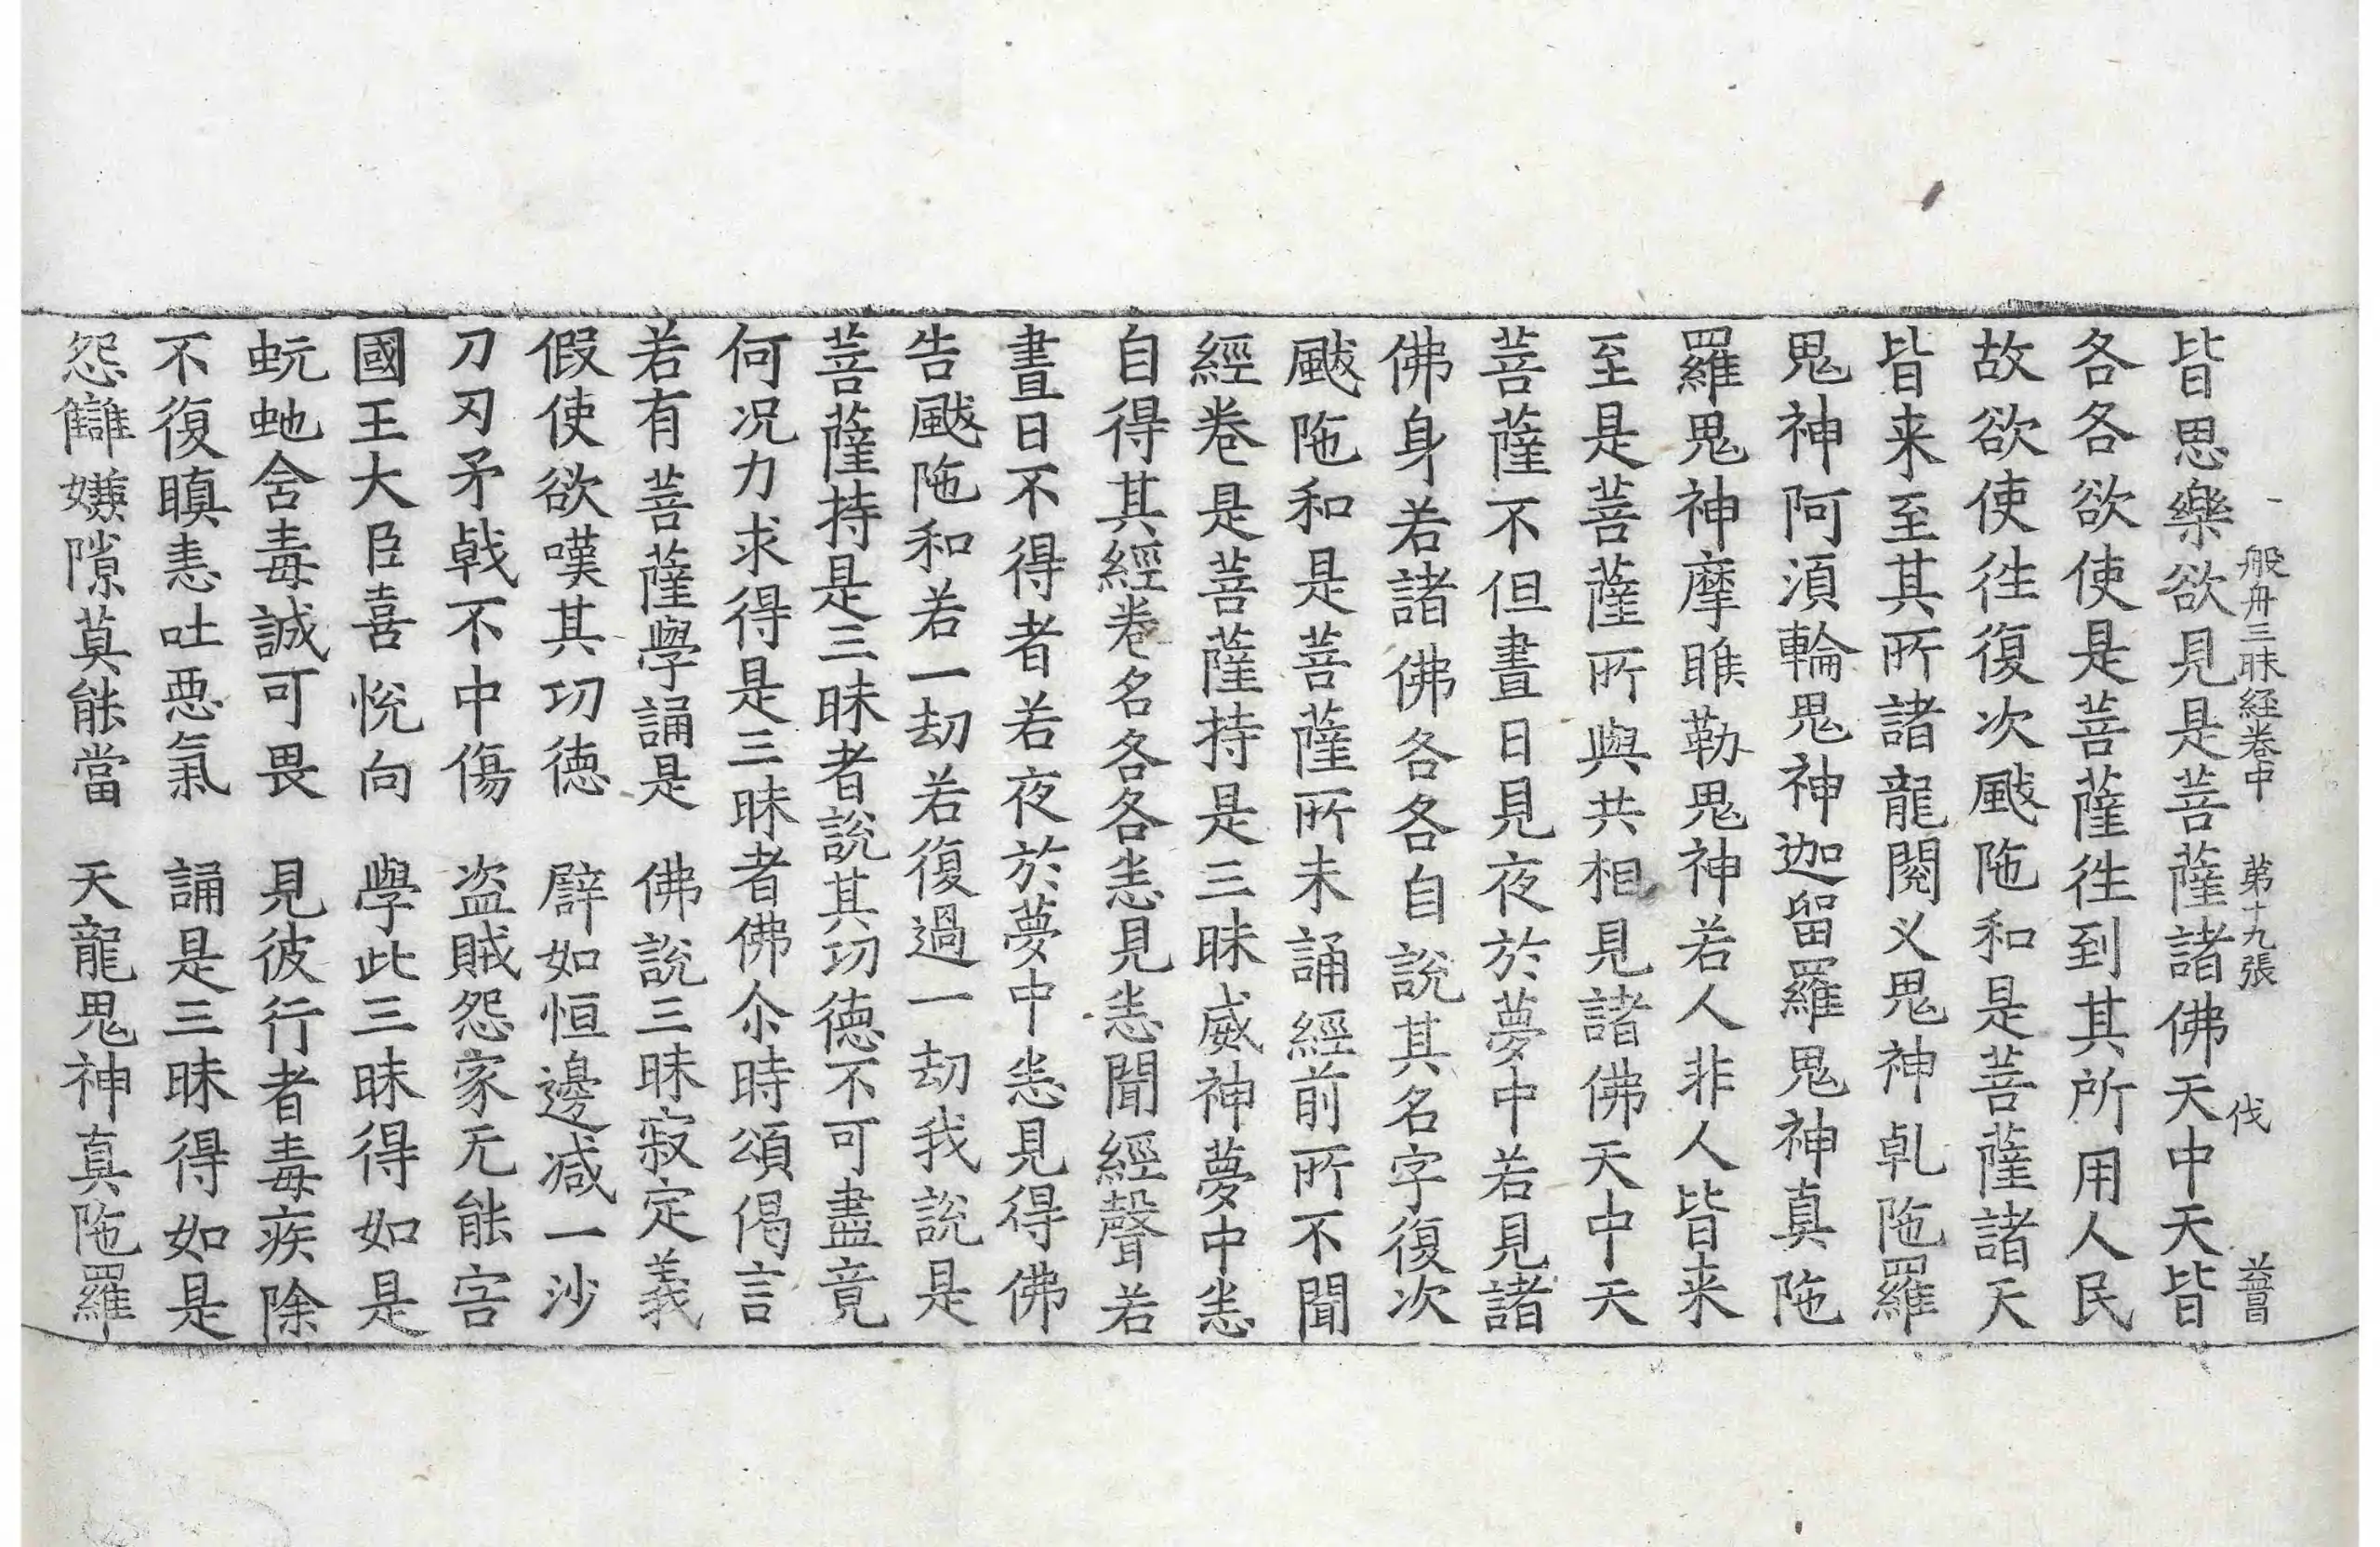 般舟三昧経卷中 苐十九張 伐
皆思樂欲見是菩薩諸佛天中天皆
各各欲使是菩薩徃到其所用人民
故欲使徃復次颰陁和是菩薩諸天
皆来至其所諸龍閱叉鬼神乹陁羅
鬼神阿湏輪鬼神迦留羅鬼神真陁
羅鬼神摩睢勒鬼神若人非人皆来
至是菩薩所與共相見諸佛天中天
菩薩不但晝日見夜於夢中若見諸
佛身若諸佛各各自說其名字復次
颰陁和是菩薩所未誦經前所不聞
經卷是菩薩持是三昧威神夢中悉
自得其經卷名各各悉見悉聞經聲若
晝日不得者若夜於夢中悉見得佛
告颰陁和若一劫若復過一劫我說是
菩薩持是三昧者說其功德不可盡竟
何况力求得是三昧者佛尒時頌偈言
若有菩薩學誦是 佛說三昧寂定義
假使欲嘆其功德 譬如恒邊减一沙
刀刃矛戟不中傷 盗賊怨家无能害
國王大臣喜悅向 學此三昧得如是
蚖虵含毒誠可畏 見彼行者毒疾除
不復瞋恚吐惡氣 誦是三昧得如是
怨讎嫌隙莫能當 天龍鬼神真陁羅